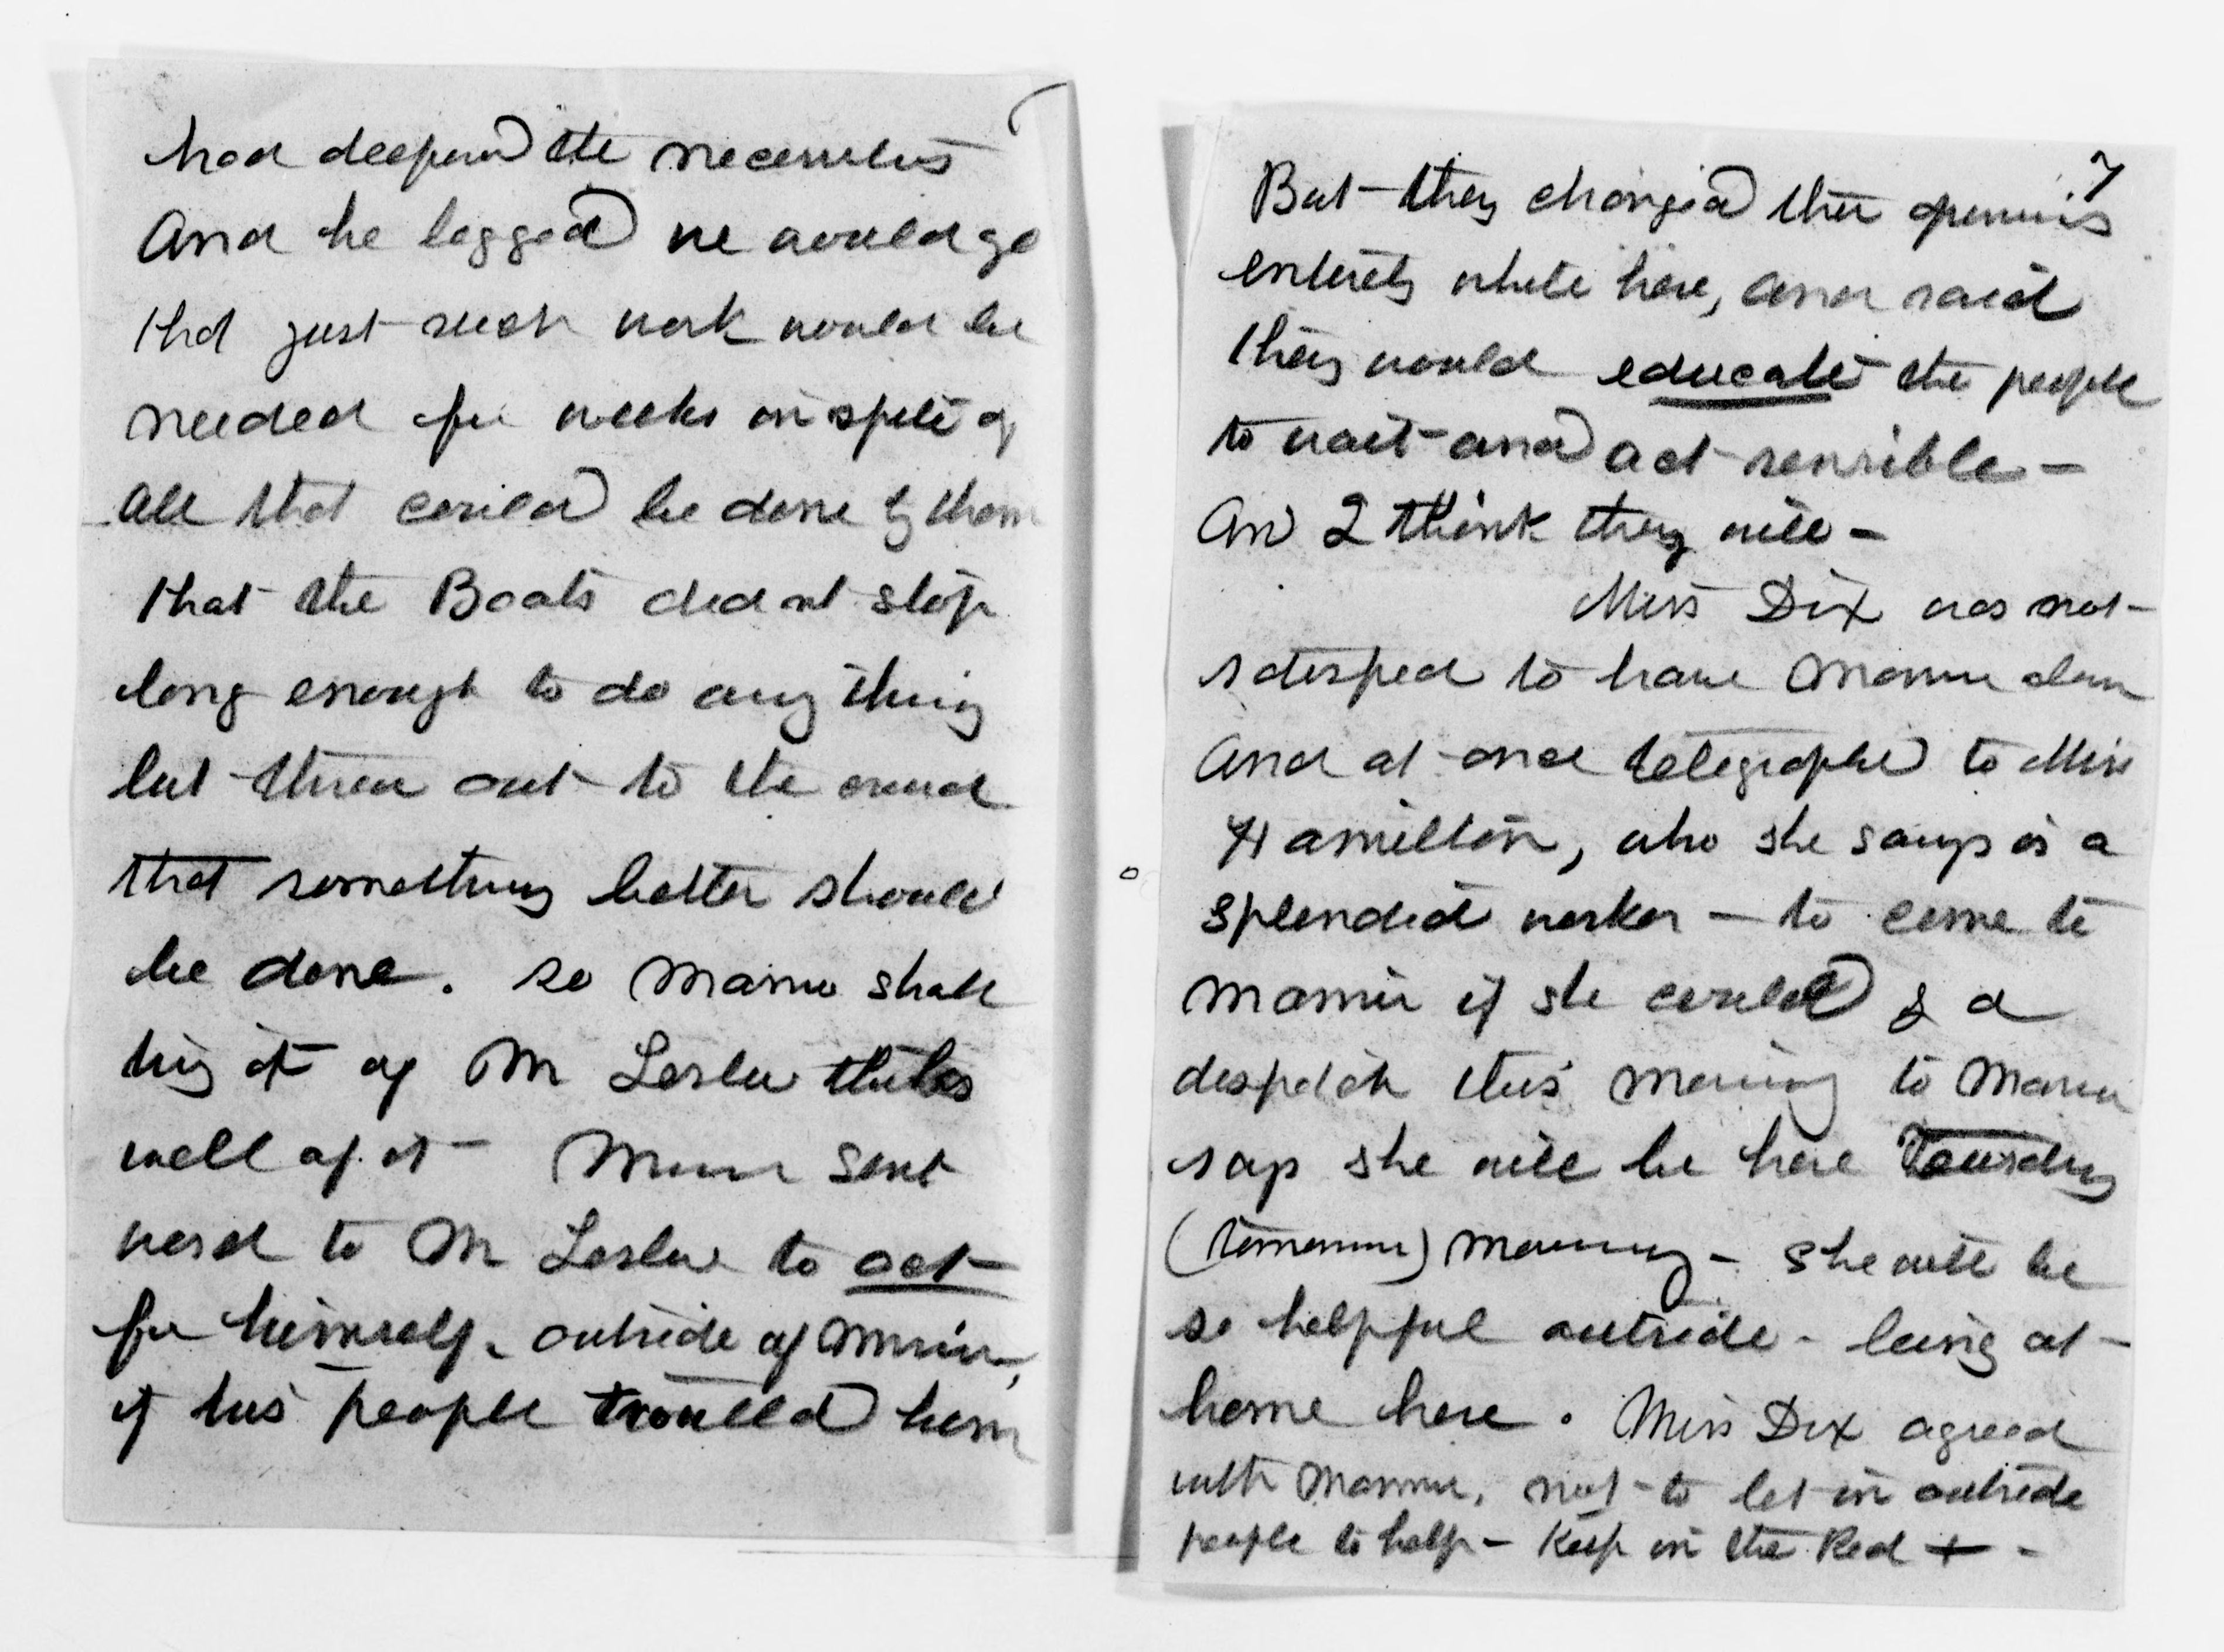 had deepend the necessities
And he begged we would go
that just such work would be
needed for weeks in spite of
all that could be done by them
that the Boats did not stop
long enough to do any thing
but throw out to the crowd
that something better should
be done. so Mamie shall
try it if Mr Leslie thinks
well of it - Mamie sent
word to Mr Leslie to act
for himself, outside of Mamie,
if his people troubled him
7
But they changed their opinions
entirely while here, and said
they would educate the people
to wait and act sensible -
And I think they will -
Miss Dix was not
satisfied to have Mamie alone
And at once telegraphed to Miss
Hamilton, who she says is a
splendid worker - to come to
Mamie if she could & a
despatch this morning to Mamie
says she will be here
(tomorrow) morning - she will be
so helpful outside - being at
home here. Miss Dix agreed
with Mamie, not to let in outside
people to help - Keep in the Red + -